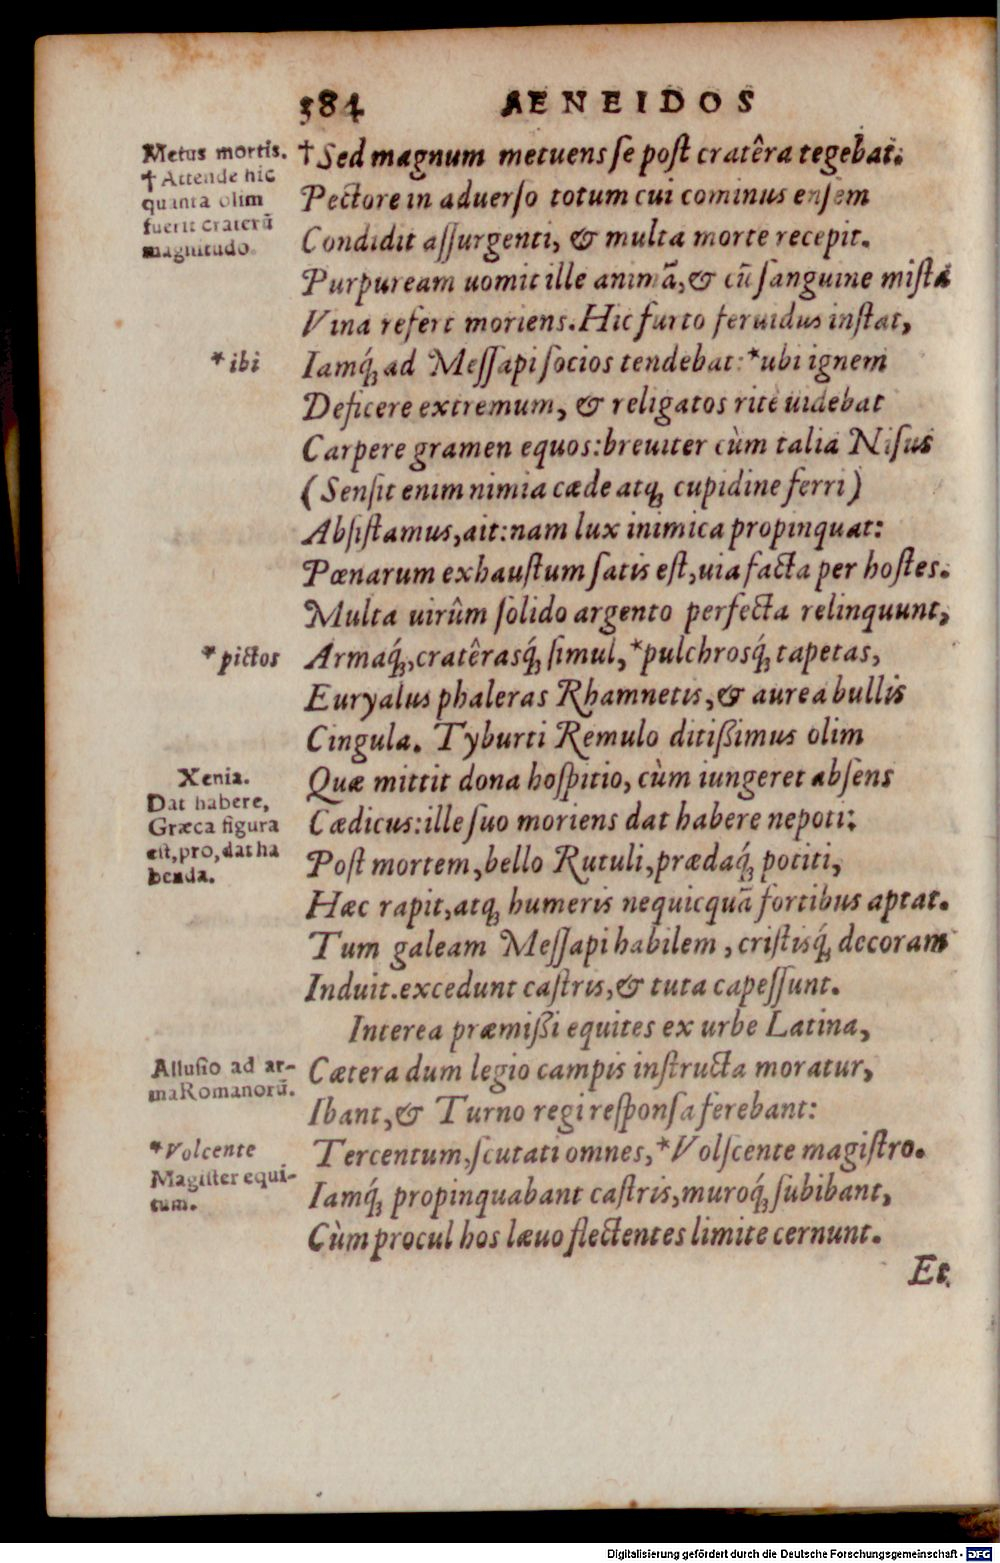 384 AENEIDOS
Metus mortis.
† Attende hic
quanta olim
fuerit craterū
magnitudo.
†Sed magnum metuens se post cratêra tegebat.
Pectore in aduerso totum cui cominus ensem
Condidit assurgenti, & multa morte recepit.
Purpuream uomit ille animā, & cū sanguine mista
Vina refert moriens. Hic furto feruidus instat,
*ibi
Iamq́; ad Messapi socios tendebat: *ubi ignem
Deficere extremum, & religatos rite uidebat
Carpere gramen equos: breuiter cùm talia Nisus
(Sensit enim nimia cæde atq; cupidine ferri)
Absistamus, ait: nam lux inimica propinquat:
Pœnarum exhaustum satis est, uia facta per hostes.
Multa uirûm solido argento perfecta relinquunt,
*pictos
Armaq́;, cratêrasq́; simul, *pulchrosq́; tapetas,
Euryalus phaleras Rhamnetis, & aurea bullis
Cingula. Tyburti Remulo ditißimus olim
Xenia.
Dat habere,
Græca figura
est, pro, dat ha
benda.
Quæ mittit dona hospitio, cùm iungeret absens
Cædicus: ille suo moriens dat habere nepoti:
Post mortem, bello Rutuli, prædaq́; potiti,
Hæc rapit, atq; humeris nequicquā fortibus aptat.
Tum galeam Messapi habilem, cristisq́; decoram
Induit. excedunt castris, & tuta capessunt.
Interea præmißi equites ex urbe Latina,
Allusio ad ar-
ma Romanorū.
Cætera dum legio campis instructa moratur,
Ibant, & Turno regi responsa ferebant:
*Volcente
Magister equi-
tum.
Tercentum, scutati omnes, *Volscente magistro.
Iamq́; propinquabant castris, muroq́; subibant,
Cùm procul hos læuo flectentes limite cernunt.
Et
Digitalisierung gefördert durch die Deutsche Forschungsgemeinschaft - DFG